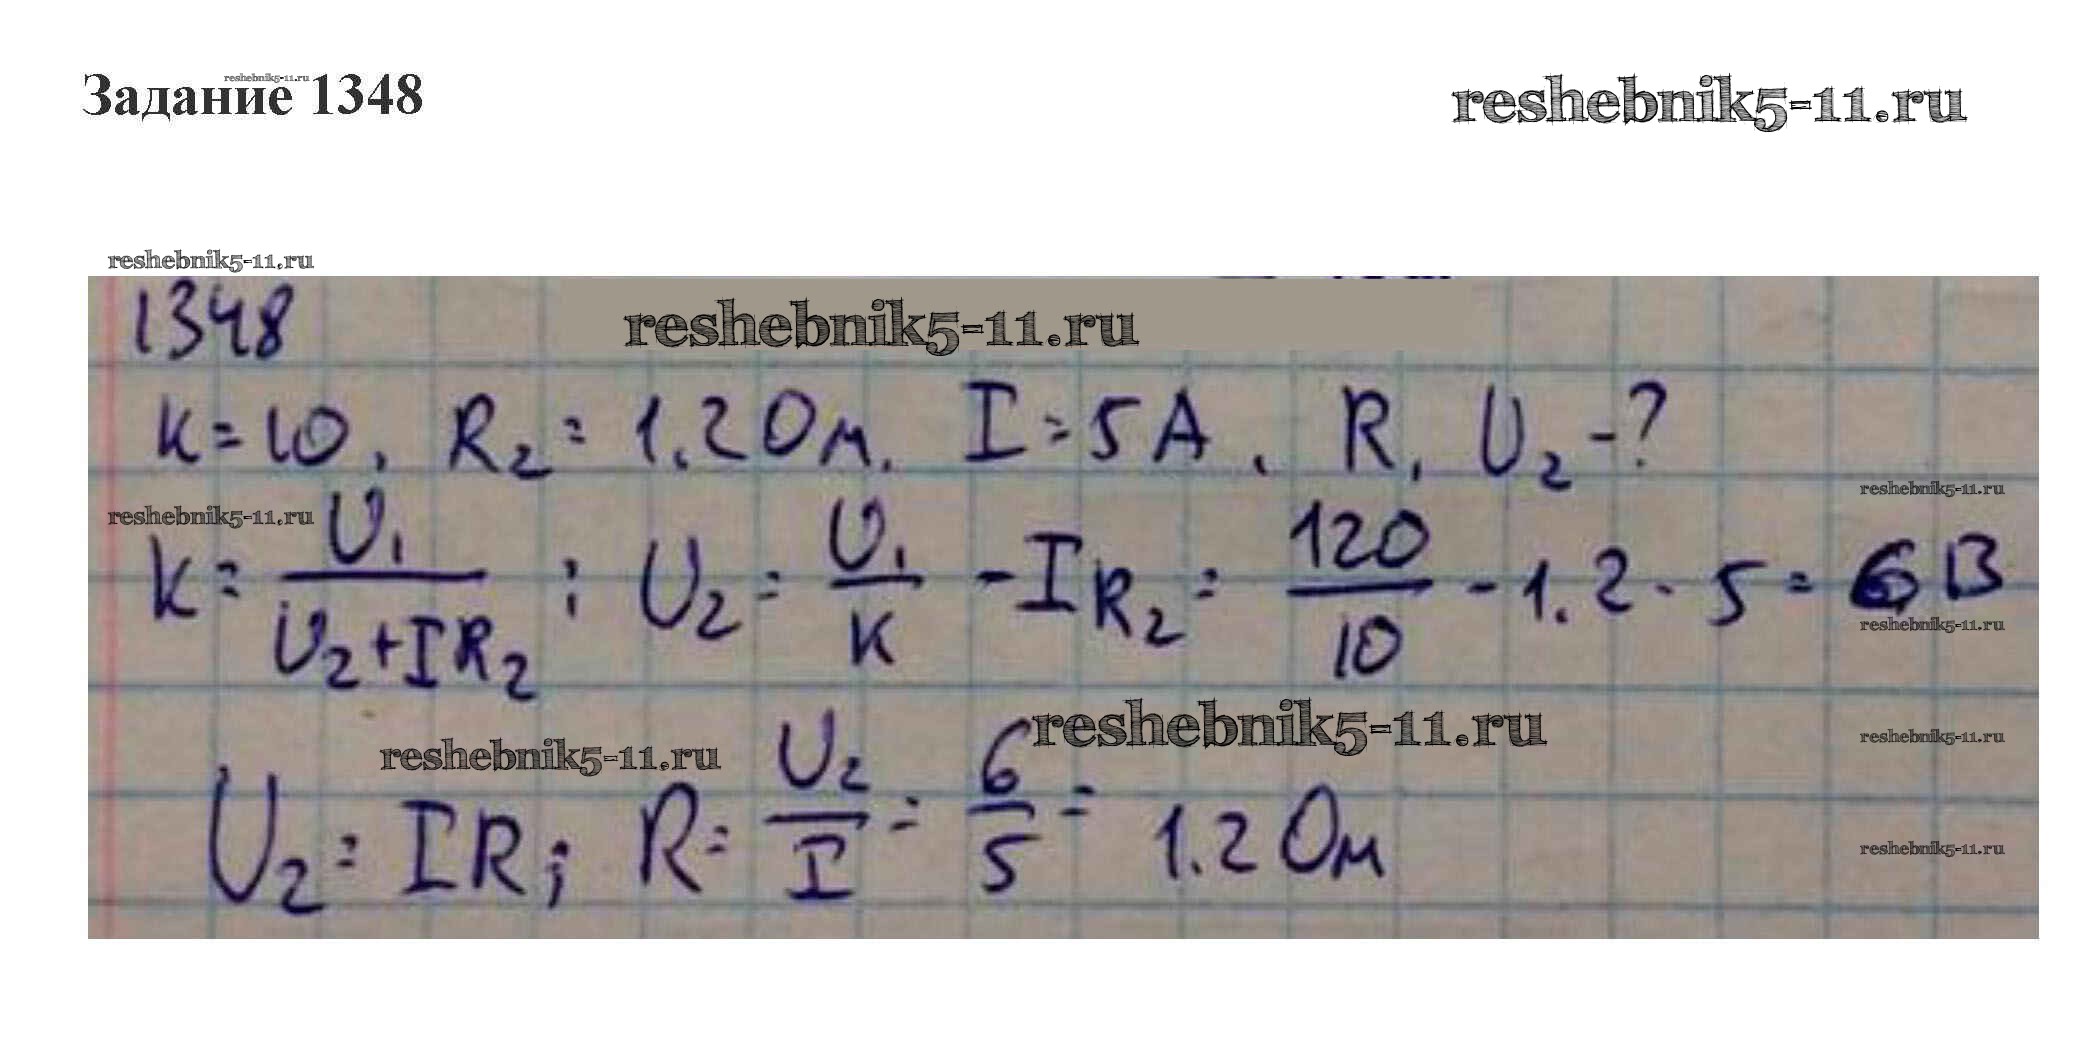 reshebnik5-11.ru
Задание 1348
reshebnik5-11.ru
reshebnik5-11.ru
1348
reshebnik5-11.ru
k=10, R₂=1.2 Ом. I=5А, R, U₂-?
reshebnik5-11.ru
reshebnik5-11.ru
k = U₁/(U₂+IR₂) ; U₂ = U₁/k - IR₂ = 120/10 - 1.2·5 = 6В
reshebnik5-11.ru
reshebnik5-11.ru
reshebnik5-11.ru
reshebnik5-11.ru
U₂ = IR; R = U₂/I = 6/5 = 1.2 Ом
reshebnik5-11.ru